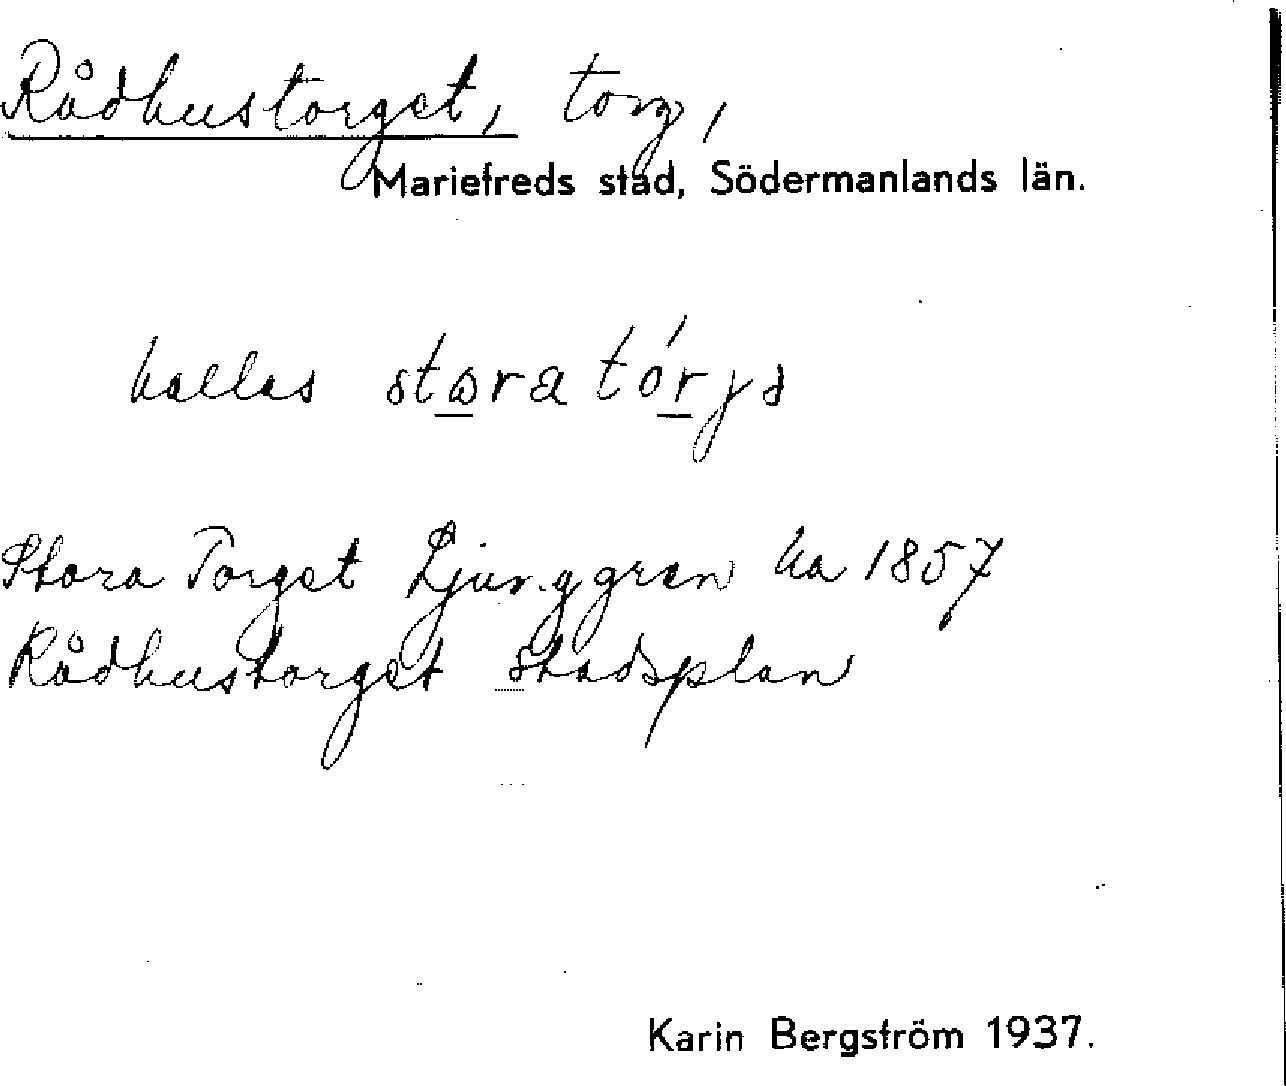 Rådhustorget, torg,
Mariefreds stad, Södermanlands län.
kallas stωra tórjə
Stora Torget Ljunggren ka 1857
Rådhustorget stadsplan
Karin Bergström 1937.